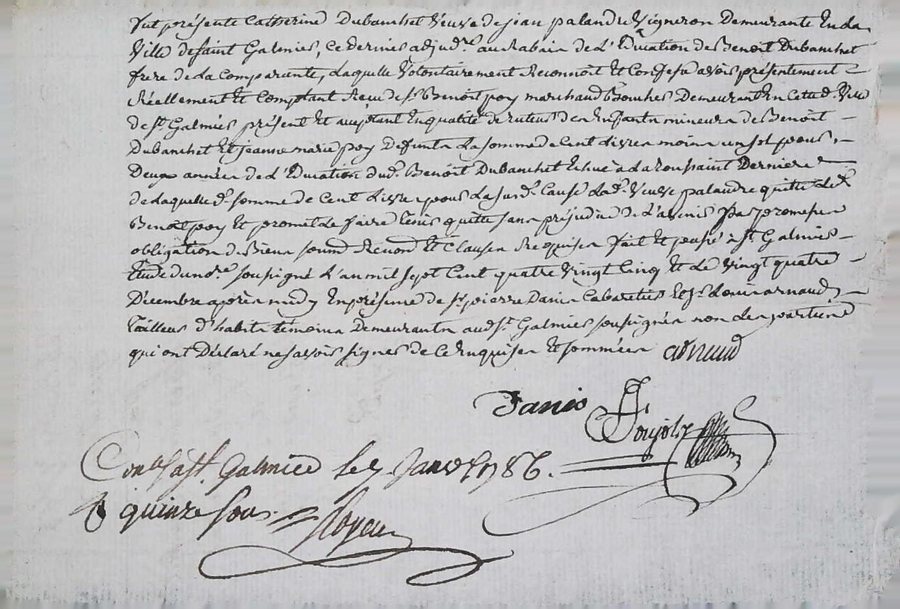 fut présente Catherine Dubanchet Veuve de jean palandre Vigneron Demeurante En la
Ville de Saint Galmier, ce dernier adjud.re au Rabais de L'Education de Benoit Dubanchet
frere de la Comparante, Laquelle Volontairement Reconnoit Et Confesse avoir présentement
Réellement Et Comptant Reçu de s.r Benoit poy marchand Boucher Demeurant En cette d. Ville
de S.t Galmier présent Et acceptant En qualité de tuteur des Enfants mineurs de Benoit
Dubanchet Et jeanne marie poy Defunts La somme de Cent Livres moins un sol pour
Deux année de L'Education du d. Benoit Dubanchet Echue a la Toussaint Derniere
de laquelle d. somme de Cent Livres pour La susd. Cause La d. Veuve palandre quitte led.
Benoit poy Et promet Le faire tenir quitte sans préjudice de L'avenir par promesse
obligation de Biens soumd Renond Et Clauses Requises fait Et passé a S.t Galmier
Etude du no.re soussigné L'an mil sept Cent quatre Vingt Cinq Et Le Vingt quatre
Décembre après midy En présence de s.r pierre Danis Cabaretier Et s. Louis arnaud
Tailleur D'habits témoins Demeurants aud. S.t Galmier soussignés non les parties
qui ont Déclaré ne savoir signer de ce Enquises Et sommées arnaud
Danis
Con.lé à S.t Galmier le 7 Janv. 1786.
quinze sous